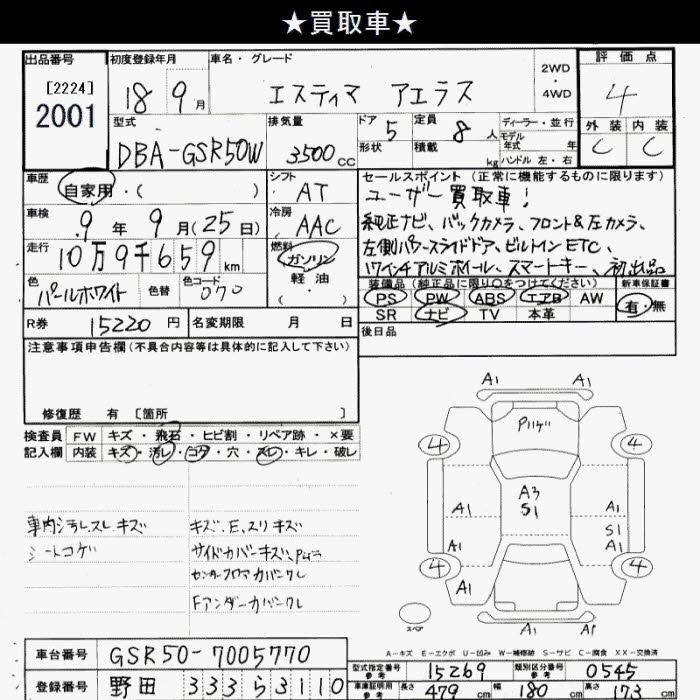 ★買取車★
出品番号
[2224]
2001
初度登録年月
18 9月
車名・グレード
エスティマ アエラス
2WD
・
4WD
評価点
4
外装 内装
C C
型式
DBA-GSR50W
排気量
3500cc
ドア 5
形状
定員 8人
積載 kg
ディーラー・並行
モデル年式 年
ハンドル 左・右
車歴
自家用・( )
シフト
AT
車検
9年9月(25日)
冷房
AAC
走行
10万9千659km
燃料
ガソリン
軽油
( )
色
パールホワイト
色替
色コード
070
セールスポイント(正常に機能するものに限ります)
ユーザー買取車!
純正ナビ、バックカメラ、フロント&左カメラ、
左側パワースライドドア、ビルトインETC、
17インチアルミホイール、スマートキー、初出品
装備品(純正品に限り○をつけてください)
PS PW ABS エアB AW
SR ナビ TV 本革
新車保証書
有・無
R券 15220円
名変期限 月 日
後日品
注意事項申告欄(不具合内容等は具体的に記入して下さい)
修復歴 有 [箇所 ]
検査員
記入欄
FW キズ・飛石・ヒビ割・リペア跡・×要
内装 キズ・汚レ・コゲ・穴・スレ・キレ・破レ
車内シラレスレキズ
シートコゲ
キズ、E、スリキズ
サイドカバーキズ、
Fアンダーカバークレ
A1 A1
4 4
A3
S1
A1 A1
S1
A1 A1
4 4
A1
A1 A1
スペア
A-キズ E-エクボ U-凹み W-補修跡 S-サビ C-腐食 XX-交換済
車台番号 GSR50-7005770
登録番号 野田 333 ら 3110
型式指定番号
参考
15269
類別区分番号
参考
0545
車庫証明用
参考
長さ 479cm 幅 180cm 高さ 173cm